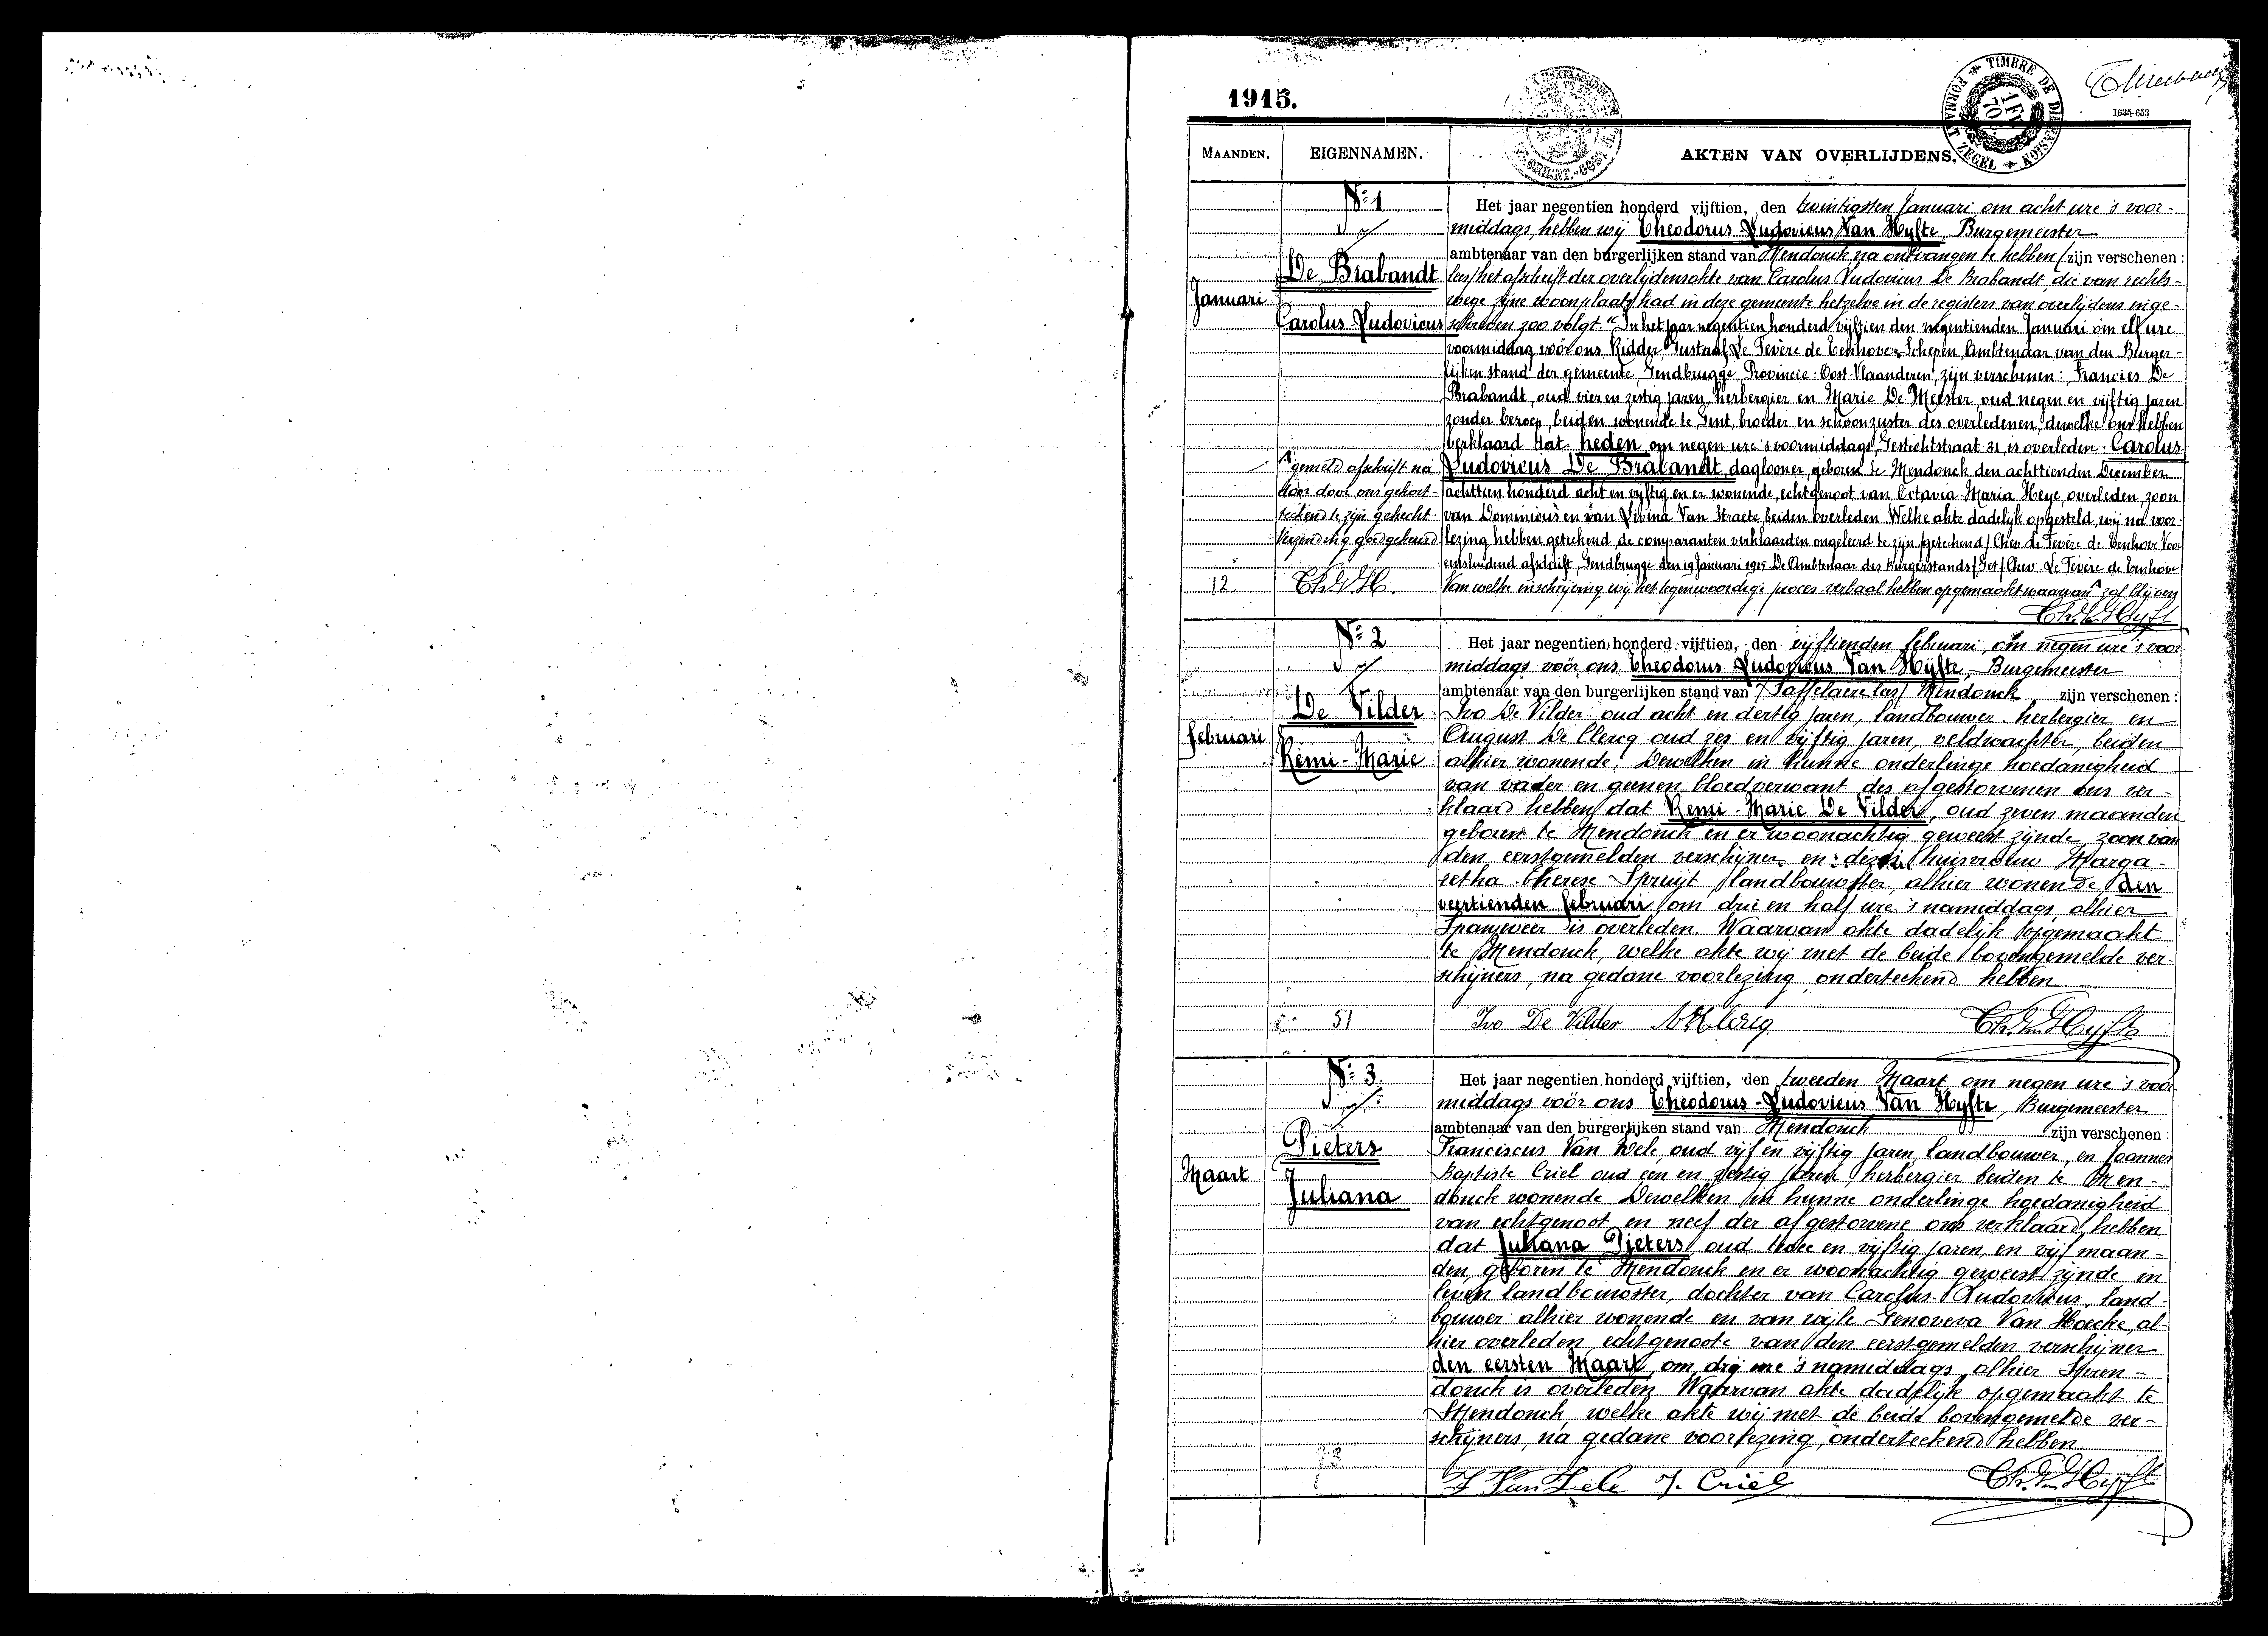 1915.
TIMBRE DE DIMENSION
FORMAAT ZEGEL
1 FR
70
1635-653
MAANDEN.
EIGENNAMEN.
AKTEN VAN OVERLIJDENS.
Januari
No 1
De Brabandt
Carolus Ludovicus
Het jaar negentien honderd vijftien, den twintigsten Januari om acht ure 's voor-
middags, hebben wij Theodorus Ludovicus Van Hyfte, Burgemeester
ambtenaar van den burgerlijken stand van Mendonck na ontvangen te hebben / zijn verschenen :
les/ het afschrift der overlijdensakte van Carolus Ludovicus De Brabandt, die van rechts-
wege zijne woonplaats had in deze gemeente hetzelve in de registers van overlijdens inge-
schreven zoo volgt. "In het jaar negentien honderd vijftien den negentienden Januari om elf ure
voormiddag vóór ons Ridder Gustaaf De Tevère de Eenhove, Schepen, Ambtenaar van den Burger-
lijken stand der gemeente, Gendbrugge, Provincie: Oost-Vlaanderen, zijn verschenen: Francies De
Brabandt, oud vier en zestig jaren, herbergier en Marie De Meester, oud negen en vijftig jaren
zonder beroep, beiden wonende te Gent, broeder en schoonzuster des overledenen, dewelke ons hebben
verklaard dat heden om negen ure 's voormiddags, Gestichtstraat 31, is overleden. Carolus
Ludovicus De Brabandt, daglooner, geboren te Mendonck den achttienden December
achttien honderd acht en vijftig en er wonende, echtgenoot van Octavia-Maria Heye, overleden, zoon
van Dominicus en van Livina Van Straete, beiden overleden. Welke akte dadelijk opgesteld, wij na voor-
lezing hebben geteekend, de comparanten verklaarden ongeleerd te zijn (geteekend) Chev. De Tevère de Eenhove Voor
eensluidend afschrift, Gendbrugge den 19 Januari 1915 De Ambtenaar des Burgerstands (Get) Chev. De Tevère de Eenhove
Van welke inschrijving wij het tegenwoordige proces verbaal hebben opgemaakt waarvan ^ zal blijven
^ gemeld afschrift na
door ons gehecht
Verzending goedgekeurd
12
Th. V. H.
Th. V. Hyfte
Februari
No 2
De Vilder
Remi-Marie
Het jaar negentien honderd vijftien, den vijftienden Februari, om negen ure 's voor
middags vóór ons Theodorus Ludovicus Van Hyfte, Burgemeester
ambtenaar van den burgerlijken stand van / Saffelaere les/ Mendonck zijn verschenen :
Ivo De Vilder oud acht en dertig jaren, landbouwer herbergier en
August De Clercq oud zes en vijftig jaren, veldwachter, beiden
alhier wonende. Dewelken in hunne onderlinge hoedanigheid
van vader en geenen bloedverwant des afgestorvenen ons ver-
klaard hebben dat Remi-Marie De Vilder, oud zeven maanden
geboren te Mendonck en er woonachtig geweest zijnde, zoon van
den eerstgemelden verschijner en dezes huisvrouw Marga-
retha Therese Spruyt landbouwster, alhier wonende, den
veertienden Februari om drie en half ure 's namiddags, alhier
Spanjeveer is overleden. Waarvan akte dadelijk opgemaakt
te Mendonck, welke akte wij met de beide bovengemelde ver-
schijners, na gedane voorlezing, onderteekend hebben.
51
Ivo De Vilder
A. De Clercq
Th. Van Hyfte
Maart
No 3
Pieters
Juliana
Het jaar negentien honderd vijftien, den tweeden Maart, om negen ure 's voor
middags vóór ons Theodorus-Ludovicus Van Hyfte, Burgemeester
ambtenaar van den burgerlijken stand van Mendonck zijn verschenen :
Franciscus Van Hele, oud vijf en vijftig jaren, landbouwer, en Joannes
Baptiste Criel oud een en zestig jaren, herbergier beiden te Men-
donck wonende Dewelken in hunne onderlinge hoedanigheid
van echtgenoot en neef der afgestorvene ons verklaard hebben
dat Juliana Pieters oud twee en vijftig jaren, en vijf maan-
den, geboren te Mendonck en er woonachtig geweest zijnde in
leven landbouwster, dochter van Carolus-Ludovicus, land-
bouwer alhier wonende en van wijle Genoveva Van Hoecke, al-
hier overleden, echtgenoote van den eerstgemelden verschijner
den eersten Maart, om drij ure 's namiddags, alhier Spen-
donck is overleden. Waarvan akte dadelijk opgemaakt te
Mendonck, welke akte wij met de beide bovengemelde ver-
schijners, na gedane voorlezing, onderteekend hebben
73
F Van Hele
J. Criel
Th. Van Hyfte